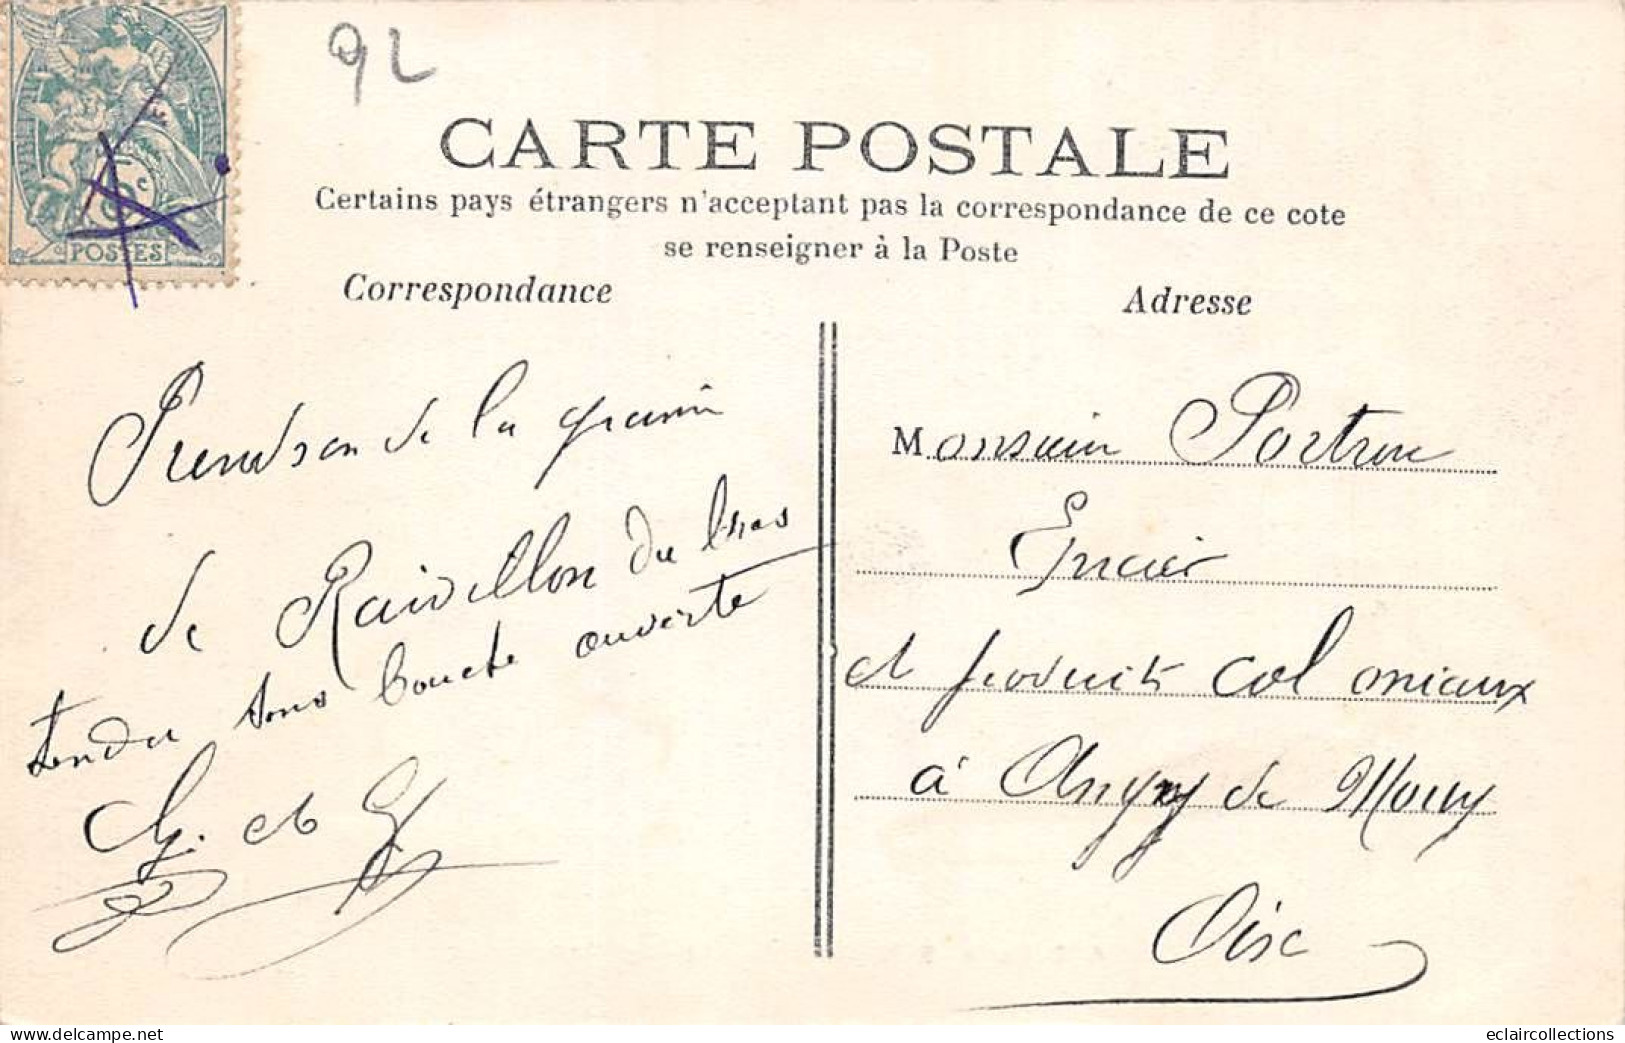 92
CARTE POSTALE
Certains pays étrangers n'acceptant pas la correspondance de ce cote
se renseigner à la Poste
Correspondance
Adresse
POSTES
de la
de Raidillon du bras
tendu sous bouche ouverte
G. et G.
Monsieur
Epicier
et produits coloniaux
à Angy de Mouy
Oise
eclaircollections